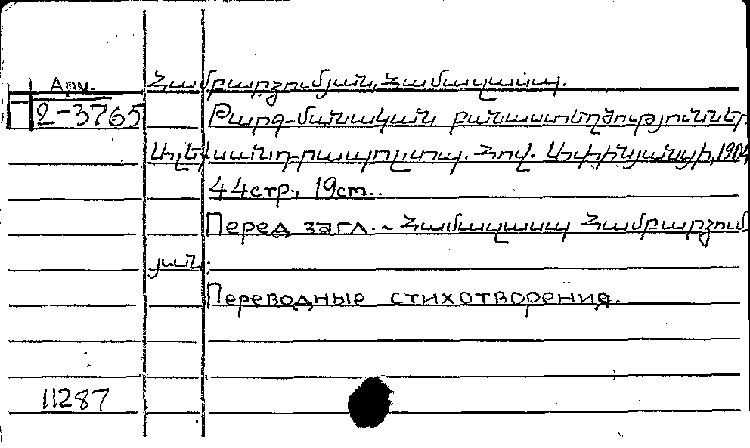 Арм. Համբարձումյան, Համազասպ.
П 2-3765 Թարգմանական բանաստեղծություններ.
Ալեքսանդրապոլ, տպ. Հով. 1904
44стр., 19см.
Перед загл. ~ Համազասպ Համբարձում
յան.
Переводные стихотворения.
11287